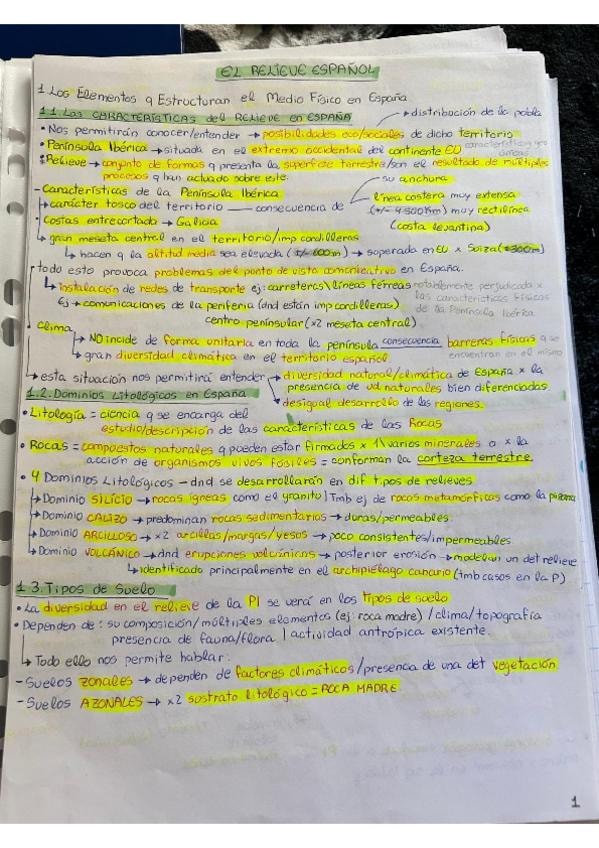 EL RELIEVE ESPAÑOL
1 Los Elementos q Estructuran el Medio Físico en España
1.1. Las CARACTERÍSTICAS del RELIEVE en ESPAÑA → distribución de la pobla
• Nos permitirán conocer/entender → posibilidades eco/sociales de dicho territorio
• Península Ibérica → situada en el extremo occidental del continente EU
• Relieve → conjunto de formas q presenta la superficie terrestre/son el resultado de múltiples
procesos q han actuado sobre este.
- Características de la Península Ibérica
su anchura
→ carácter tosco del territorio — consecuencia de
línea costera muy extensa
(+/- 4.300Km) muy rectilínea
(costa levantina)
• Costas entrecortado → Galicia
→ gran meseta central en el territorio/imp cordilleras
↳ hacen q la altitud media sea elevada (+/- 600m) → superada en EU x Suiza (1300m)
todo esto provoca problemas del punto de vista comunicativo en España.
↳ instalación de redes de transporte ej: carreteras/líneas férreas notablemente perjudicada x
las características físicas
de la Península Ibérica
Ej → comunicaciones de la periferia (dnd están imp cordilleras)
centro peninsular (x2 meseta central)
• Clima
→ NO incide de forma unitaria en toda la península consecuencia barreras físicas q se
encuentran en el mismo
↳ gran diversidad climática en el territorio español
↳ esta situación nos permitirá entender → diversidad natural/climática de España x la
presencia de ud naturales bien diferenciadas.
desigual desarrollo de las regiones.
1.2. Dominios Litológicos en España
• Litología = ciencia q se encarga del
estudio/descripción de las características de las Rocas
• Rocas = compuestos naturales q pueden estar firmados x 1\varios minerales o x la
acción de organismos vivos fósiles = conforman la corteza terrestre.
• 4 Dominios Litológicos → dnd se desarrollarán en dif tipos de relieves
→ Dominio SILÍCIO → rocas ígneas como el granito | Tmb ej de rocas metamórficas como la pizarra
→ Dominio CALIZO → predominan rocas sedimentarias → duras/permeables.
→ Dominio ARCILLOSO → x2 arcillas/margas/yesos → poco consistentes/impermeables.
→ Dominio VOLCÁNICO → dnd erupciones volcánicas → posterior erosión → modelan un det relieve
↳ identificado principalmente en el archipiélago canario (tmb casos en la P)
1.3. Tipos de Suelo
• La diversidad en el relieve de la PI se verá en los tipos de suelo
• Dependen de: su composición/múltiples elementos (ej: roca madre) /clima/topografía
presencia de fauna/flora | actividad antrópica existente.
↳ Todo ello nos permite hablar:
- Suelos ZONALES → dependen de factores climáticos/presencia de una det vegetación
- Suelos AZONALES → x2 sustrato litológico = ROCA MADRE
1